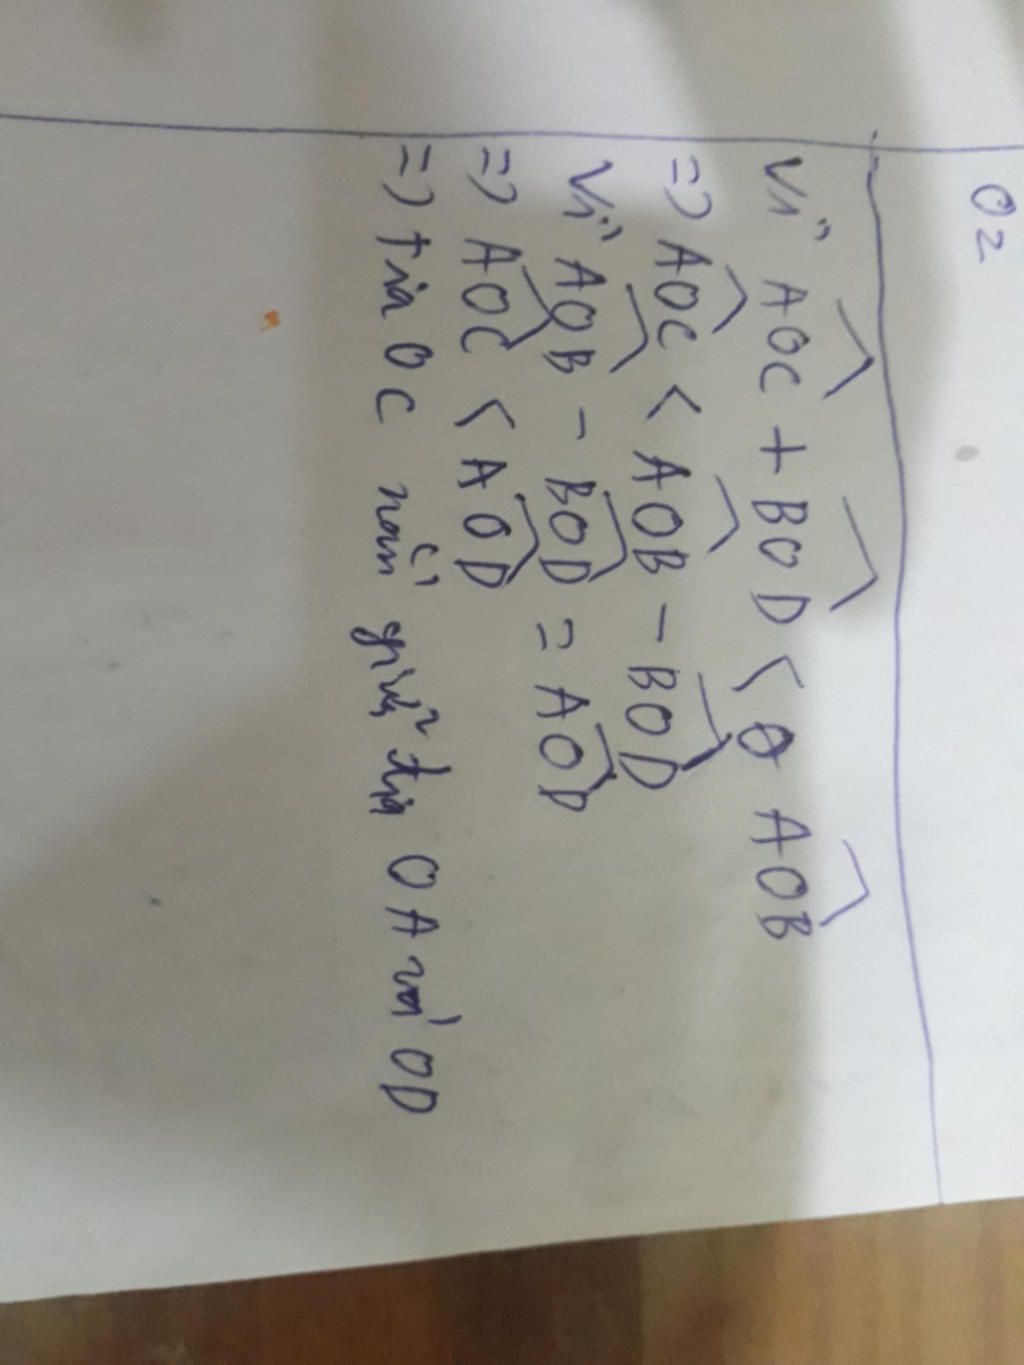 Oz
Vì AOC + BOD < AOB
=> AOC < AOB - BOD
Vì AOB - BOD = AOD
=> AOC < AOD
=> tia OC nằm giữa tia OA với OD